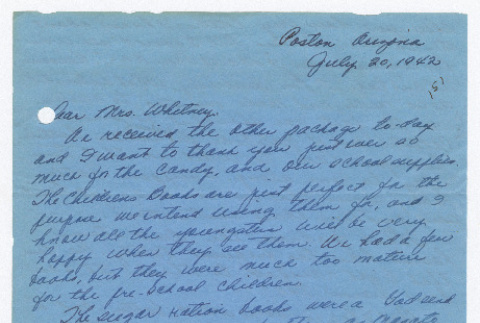 Poston Arizona
July 20, 1942
(5)
Dear Mrs. Whitney,
We received the other package to-day
and I want to thank you just ever so
much for the candy, and our school supplies.
The Childrens Books are just perfect for the
purpose we intend using them for, and I
know all the youngsters will be very
happy when they see them. We had a few
books, but they were much too mature
for the pre-school children.
The sugar ration books were a God send